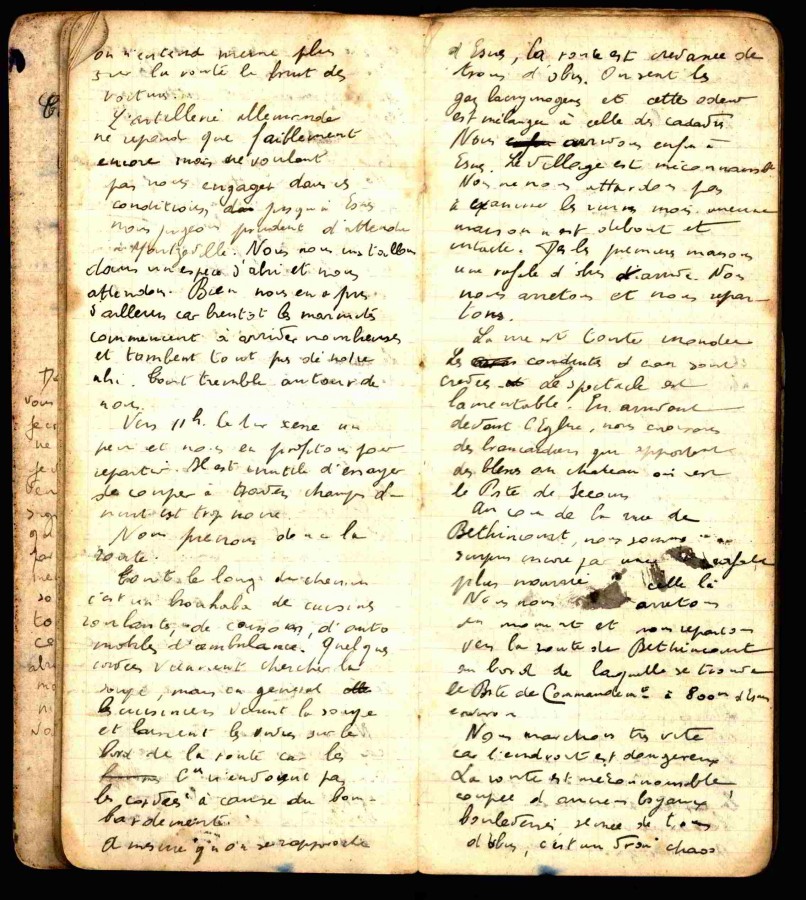 on n'entend même plus
sur la route le bruit des
voitures.
L'artillerie allemande
ne repond que faiblement
encore mais ne voulant
pas nous engager dans ces
conditions jusqu'à Esnes
nous jugeons prudent d'attendre
à Montzeville. Nous nous installons
dans un espece d'abri et nous
attendons. Bien nous en a pris
d'ailleurs car bientot les marmites
commencent à arriver nombreuses
et tombent tout pres de notre
abri. Tout tremble autour de
nous.
Vers 11h. le tir cesse un
peu et nous en profitons pour
repartir. Il est inutile d'essayer
de couper à travers champs la
nuit est trop noire.
Nous prenons donc la
route.
Tout le long du chemin
c'est un brouhaha de cuisines
roulantes, de convois, d'auto
mobiles d'ambulance. Quelques
corvées viennent chercher la
soupe, mais en general
les cuisiniers vident la soupe
et laissent les vivres sur le
bord de la route car les
Cies n'envoient pas
les corvées à cause du bom-
bardement.
A mesure qu'on se rapproche
d'Esnes, la route est crevassée de
trous d'obus. On sent les
gaz lacrymogenes et cette odeur
est mélangée à celle des cadavres
Nous arrivons enfin à
Esnes. Le village est méconnaissable
Nous ne nous attardons pas
à examiner les ruines mais aucune
maison n'est debout et
intacte. Dès les premieres maisons
une rafale d'obus arrive. Nous
nous arretons et nous repar-
tons.
La rue est toute inondée
Les conduites d'eau sont
crevées. Le spectacle est
lamentable. En arrivant
devant l'Eglise, nous croisons
des brancardiers qui apportent
des blessés au chateau où est
le Poste de Secours
Au coin de la rue de
Bethincourt, nous sommes
surpris encore par une rafale
plus nourrie celle là
Nous nous arretons
un moment et nous repartons
vers la route de Bethincourt
au bord de laquelle se trouve
le Poste de Commandement à 800m d'Esnes
environ
Nous marchons très vite
car l'endroit est dangereux
La route est méconnaissable
coupée d'anciens boyaux
bouleversés semée de trous
d'obus, c'est un vrai chaos